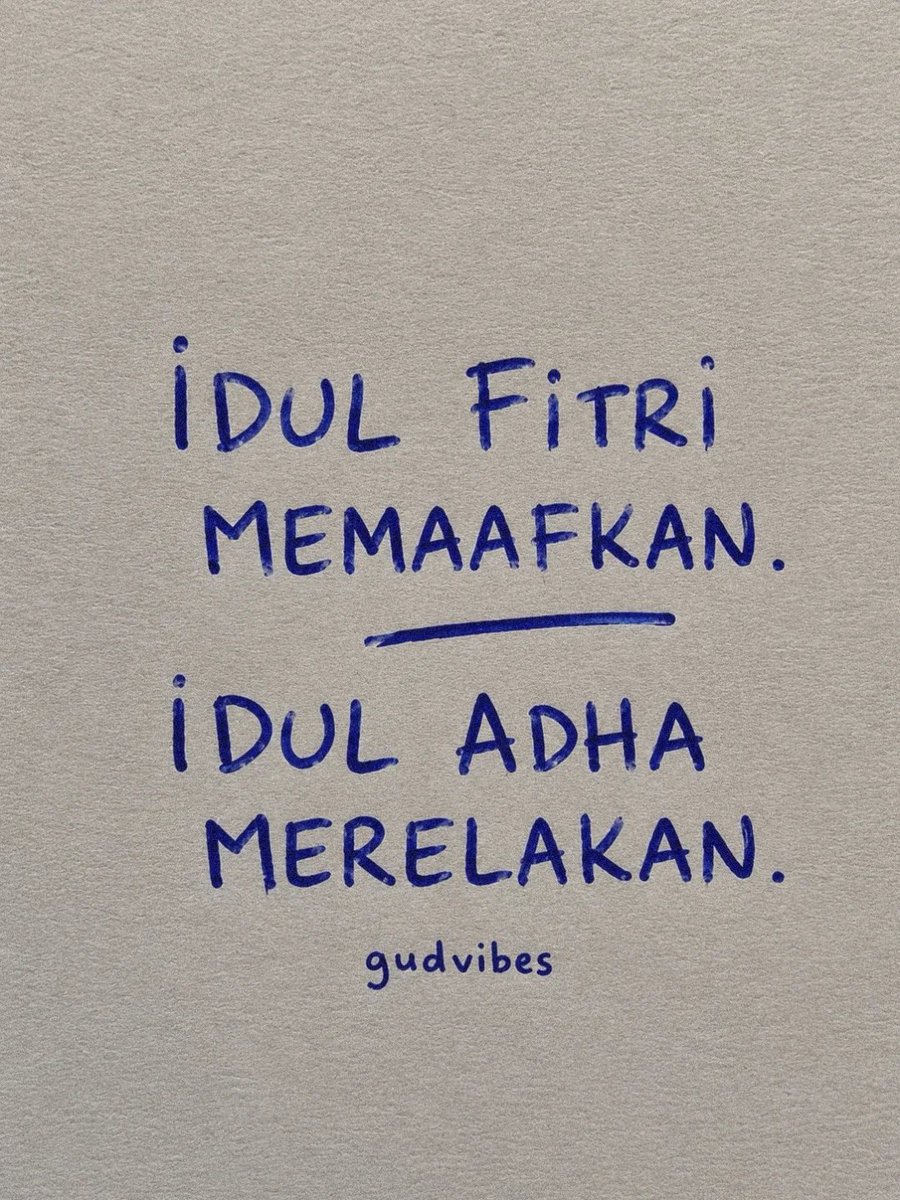 IDUL FITRI
MEMAAFKAN.
IDUL ADHA
MERELAKAN.
gudvibes